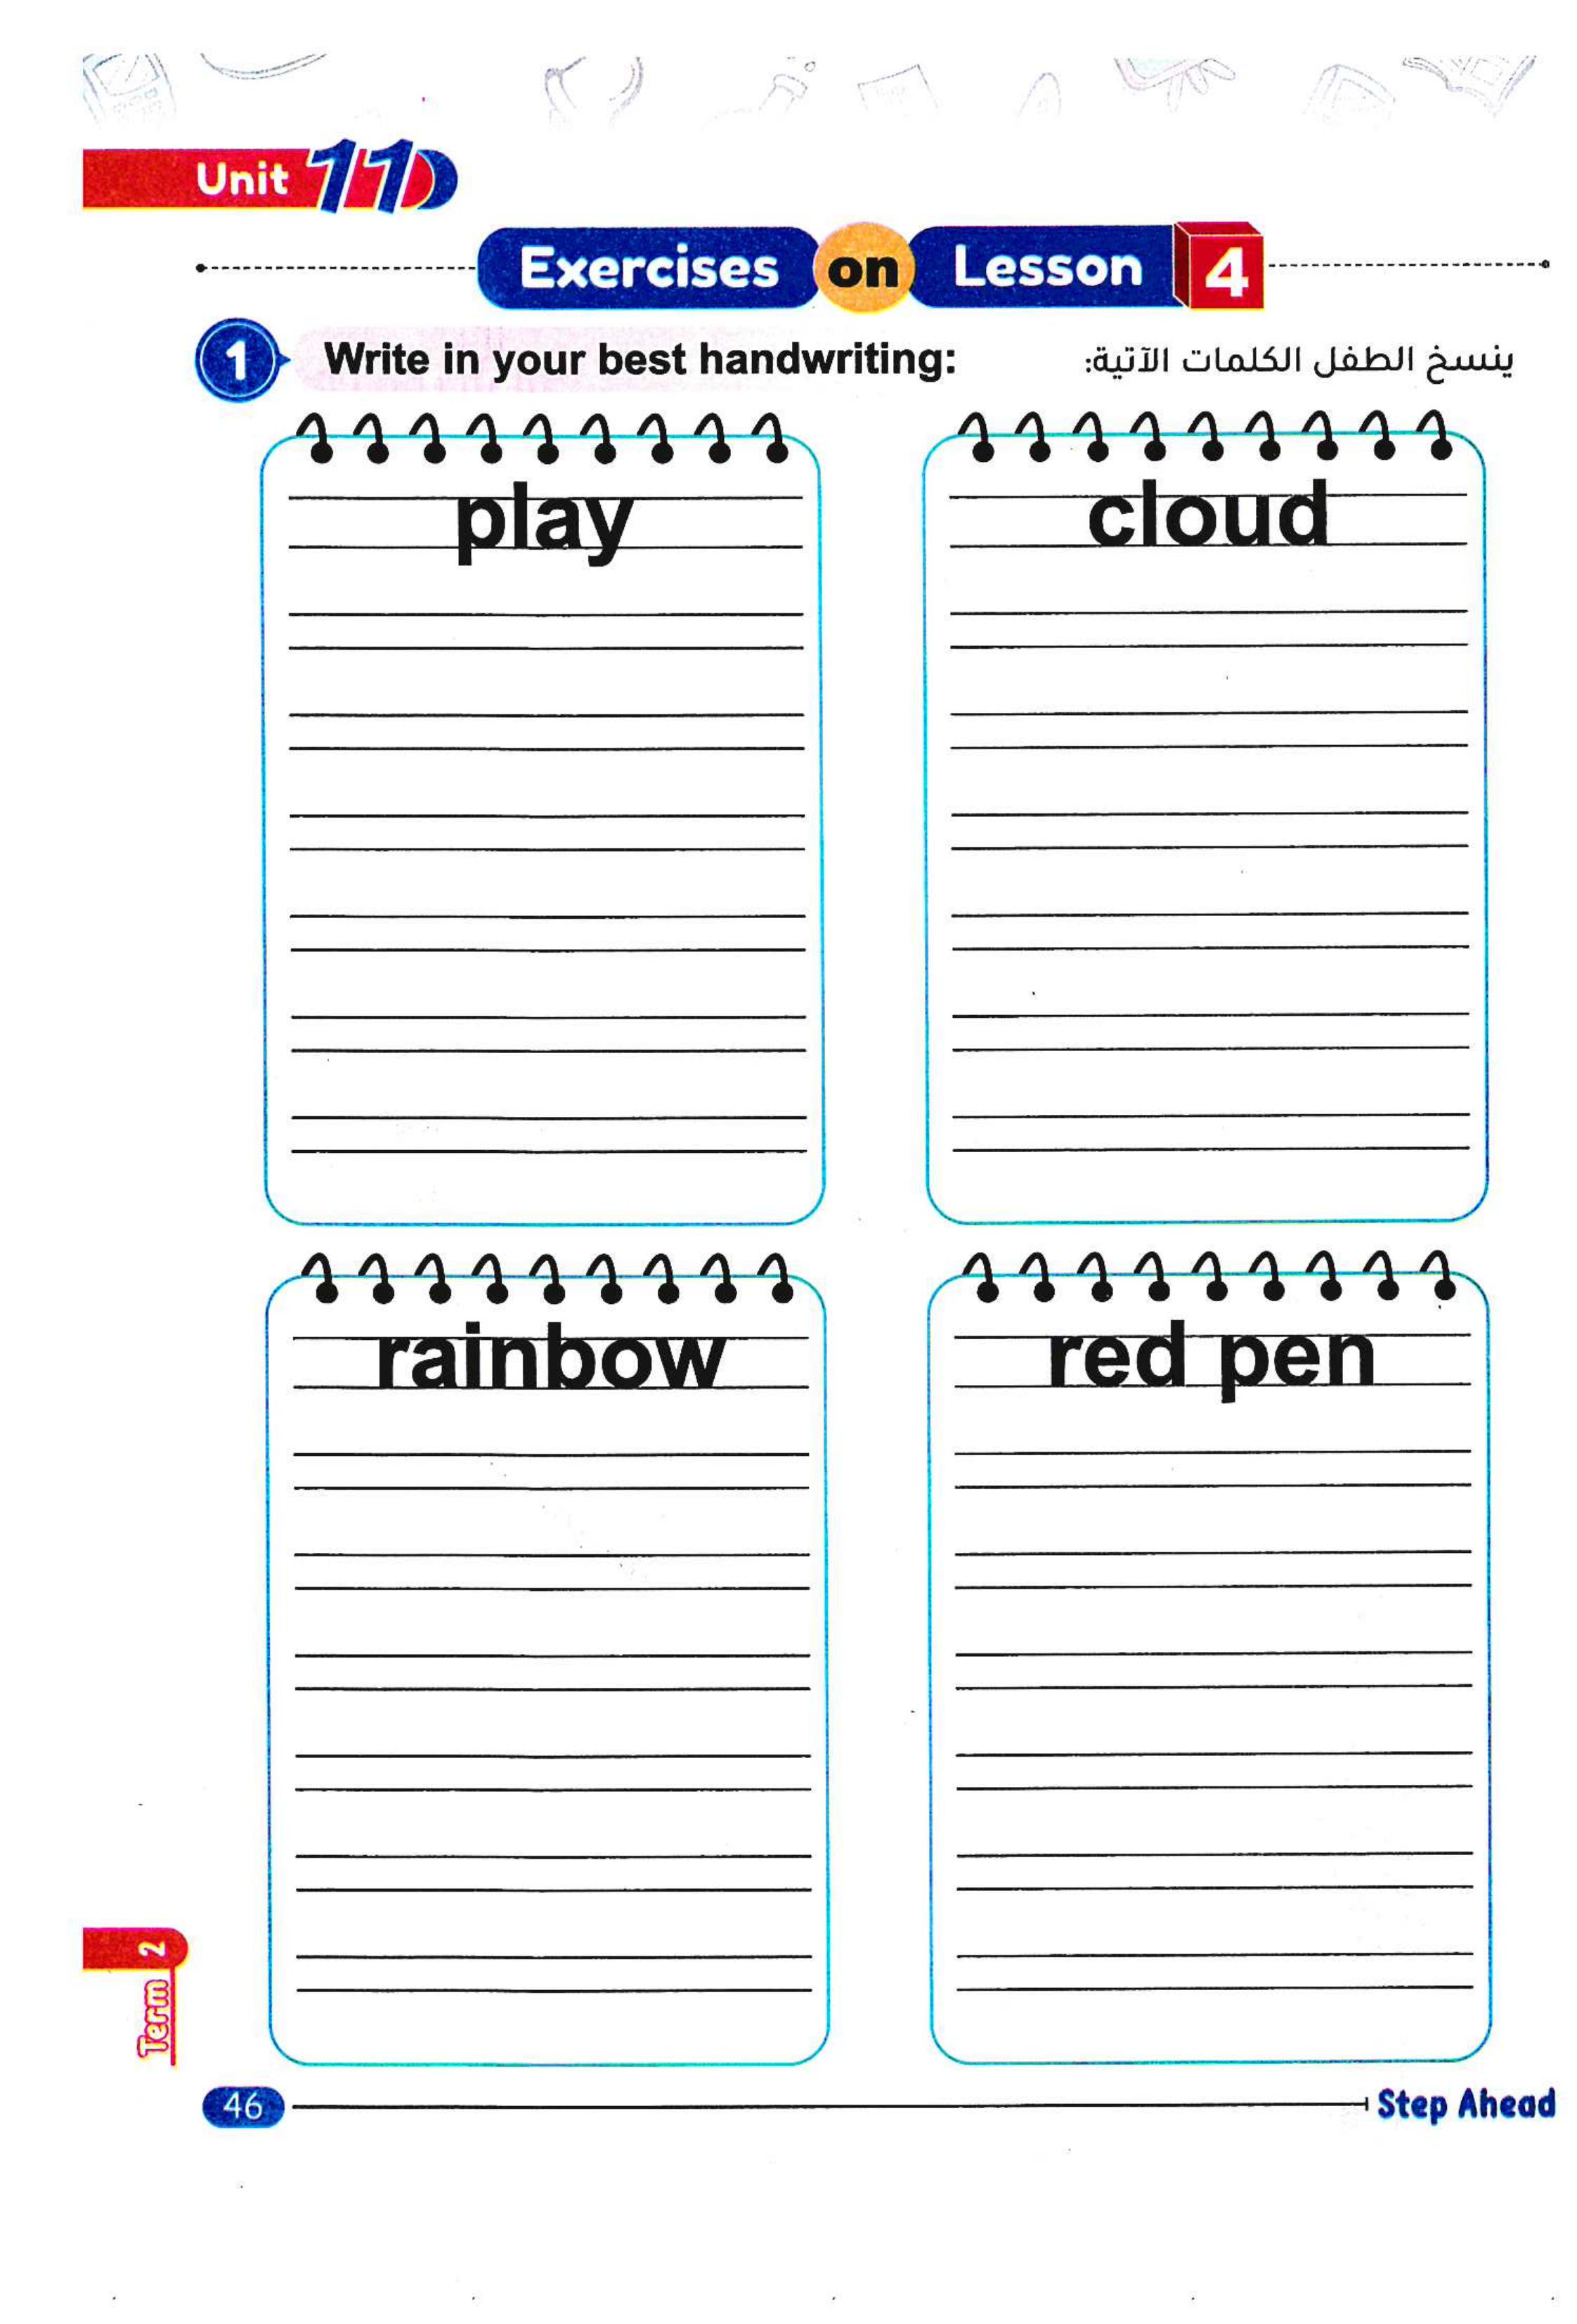 Unit 11
Exercises on Lesson 4
1 Write in your best handwriting: ينسخ الطفل الكلمات الآتية:
play
cloud
rainbow
red pen
Term 2
46
Step Ahead